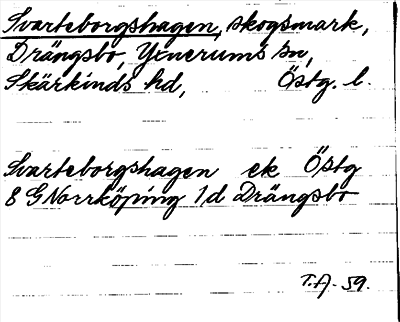 Svarteborgshagen, skogsmark,
Drängsbo, Yxnerums sn,
Skärkinds hd, Östg. l.
Svarteborgshagen ek Östg
8 G Norrköping 1d Drängsbo
T.A. -59.